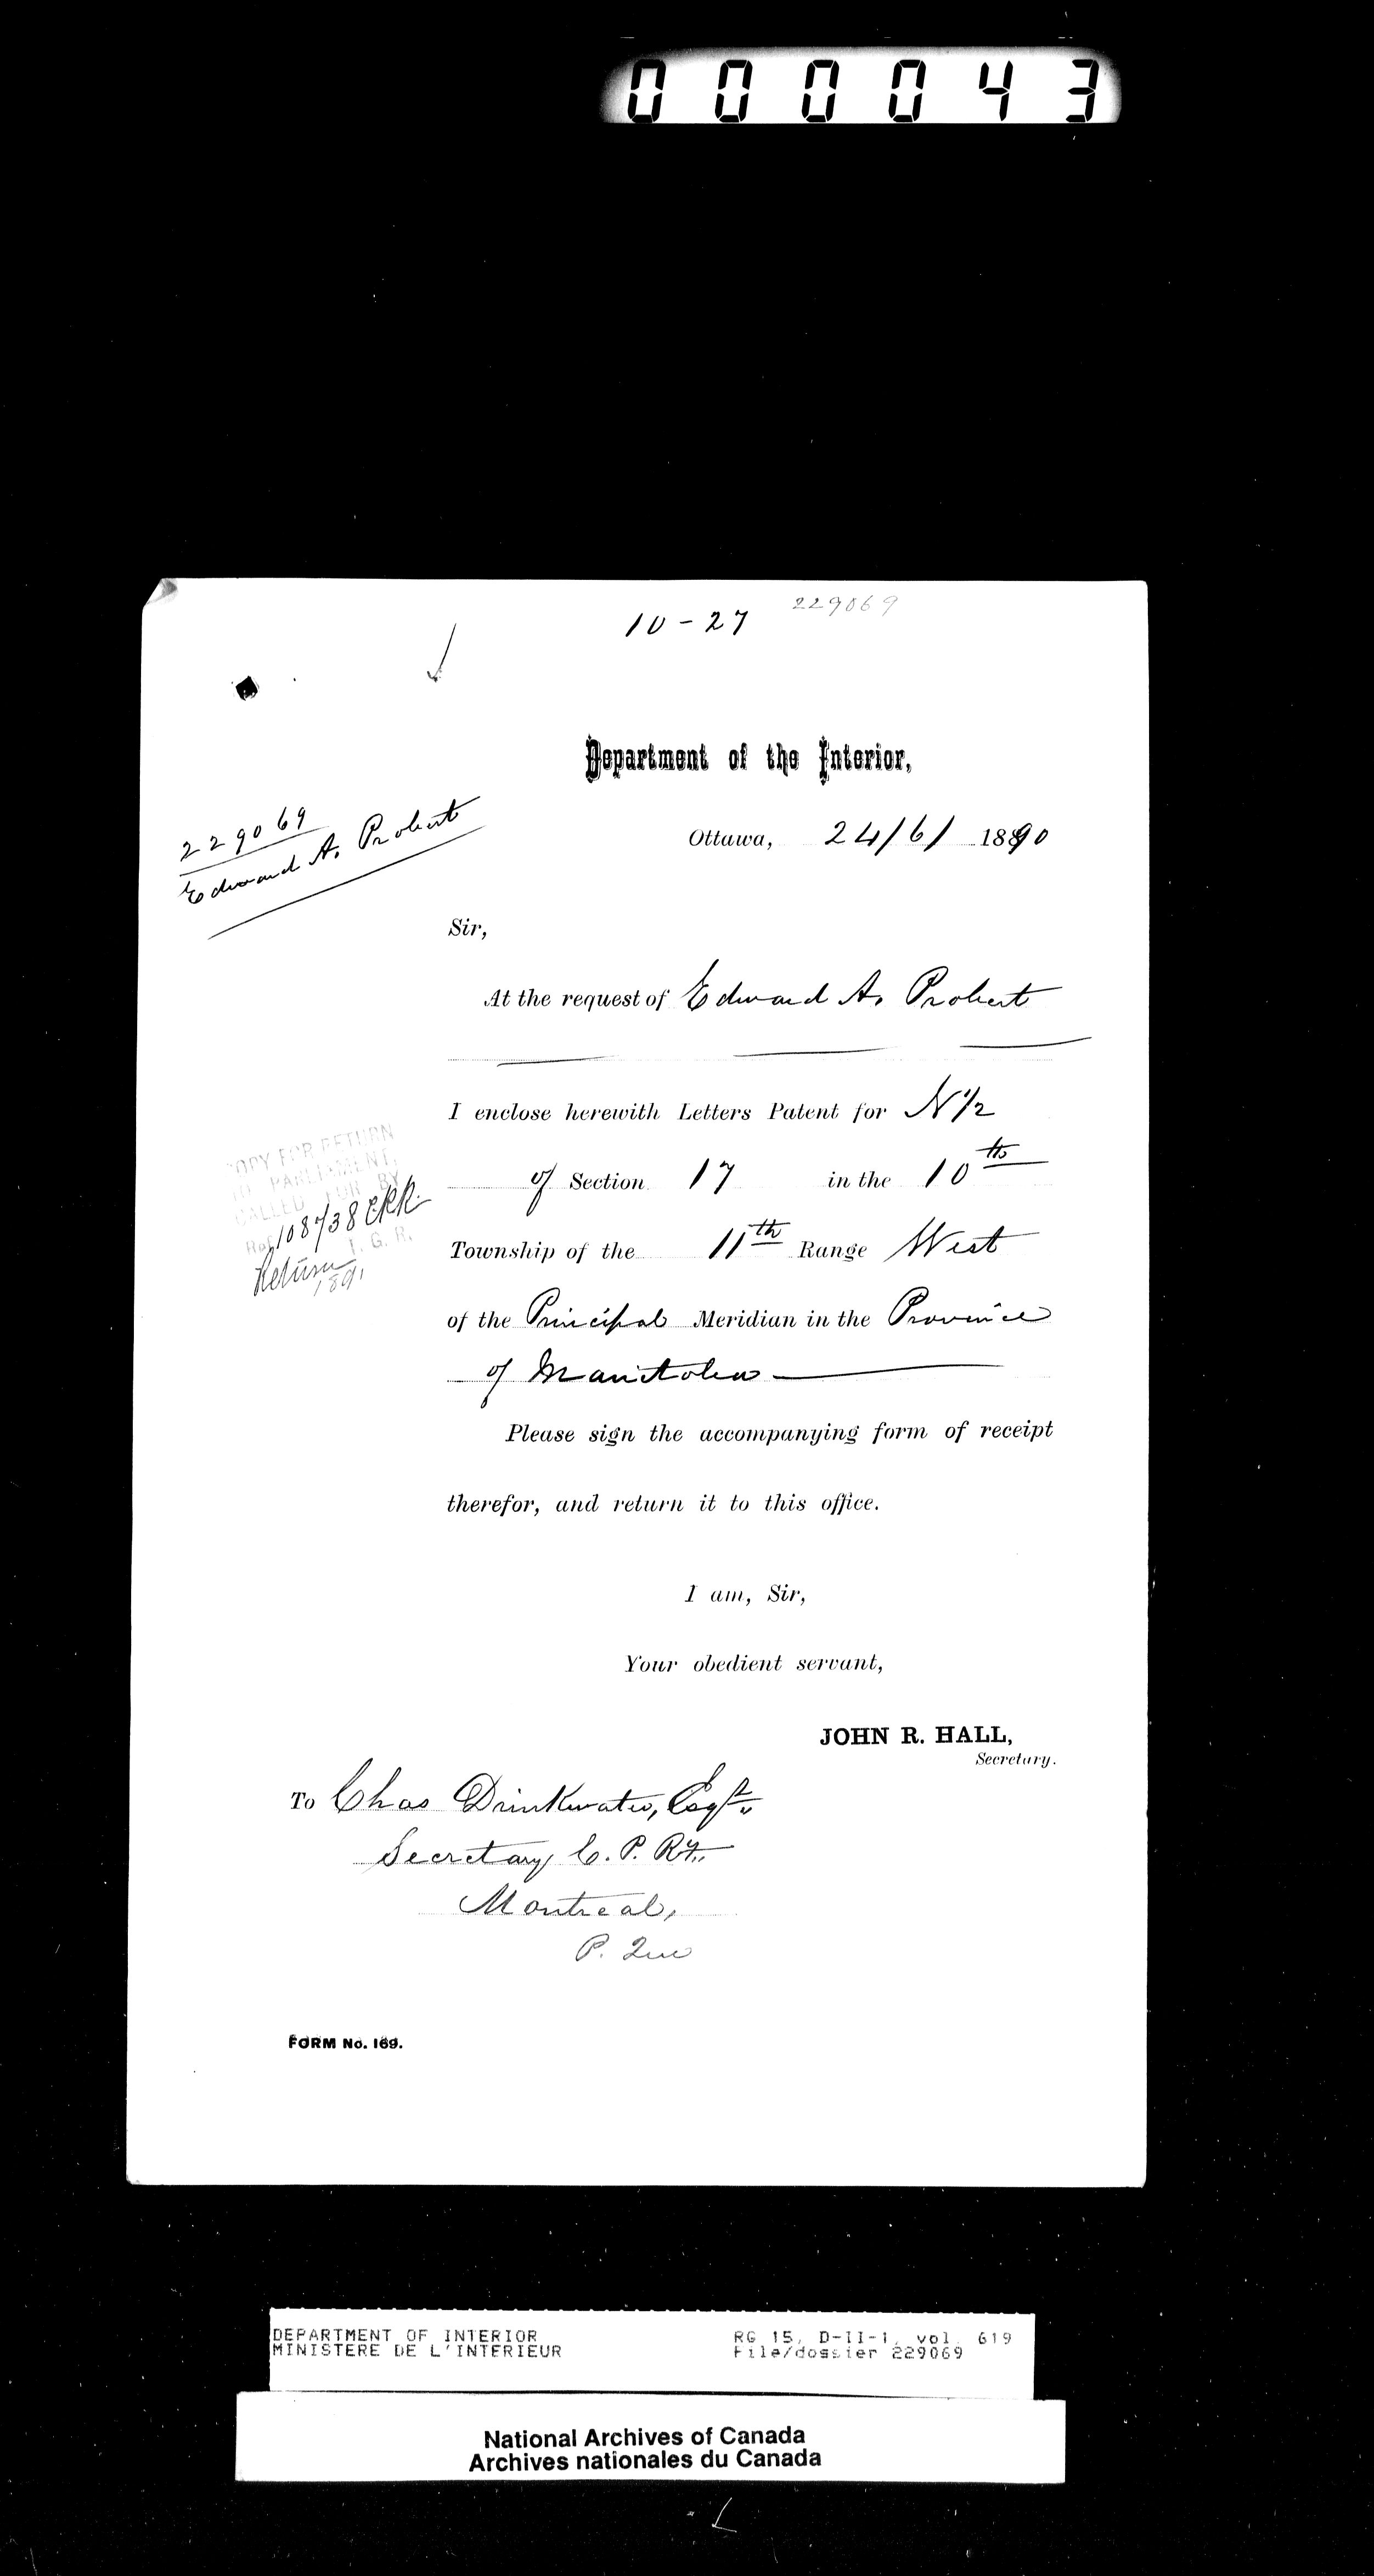 000043
10-27 229069
Department of the Interior,
229069
Edward A. Probert
Ottawa, 24/6/ 1890
Sir,
At the request of Edward A. Probert
I enclose herewith Letters Patent for N 1/2
of Section 17 in the 10th
Township of the 11th Range West
of the Principal Meridian in the Province
of Manitoba
COPY FOR RETURN
TO PARLIAMENT,
CALLED FOR BY
Ref. 108738
T. G. R.
Return
1891
Please sign the accompanying form of receipt
therefor, and return it to this office.
I am, Sir,
Your obedient servant,
JOHN R. HALL,
Secretary.
To Chas Drinkwater, Esqre.,
Secretary C. P. Ry.,
Montreal,
P. Que
FORM No. 169.
DEPARTMENT OF INTERIOR RG 15, D-II-1, vol. 619
MINISTERE DE L'INTERIEUR File/dossier 229069
National Archives of Canada
Archives nationales du Canada